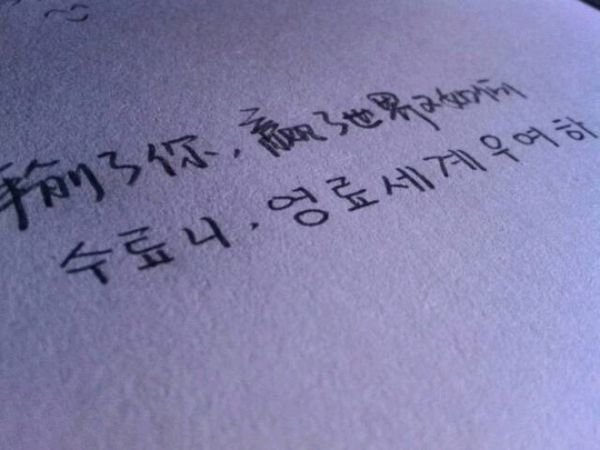 输了你,赢了世界又如何
수료니,영료세계우여하